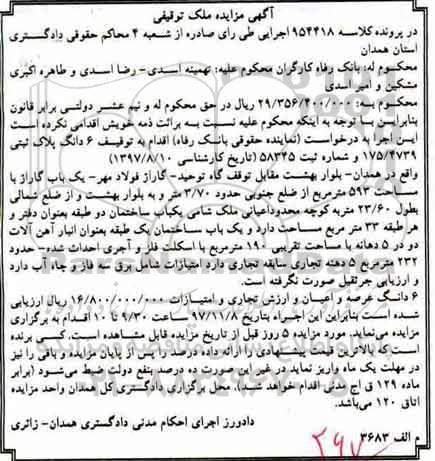 آگهی مزایده ملک توقیفی
در پرونده کلاسه ۹۵۴۴۱۸ اجرایی طی رای صادره از شعبه ۴ محاکم حقوقی دادگستری
استان همدان
محکوم له: بانک رفاه کارگران محکوم علیه: تهمینه اسدی- رضا اسدی و طاهره اکبری
مشکین و امیر اسدی
محکوم به: ۲۹/۳۵۶/۴۰۰/۰۰۰ ریال در حق محکوم له و نیم عشر دولتی برابر قانون
بنابراین با توجه به اینکه محکوم علیه نسبت به برائت ذمه خویش اقدامی نکرده است
این اجرا به درخواست (نماینده حقوقی بانک رفاه) اقدام به توقیف ۶ دانگ پلاک ثبتی
۱۷۵/۴۷۳۹ و شماره ثبت ۵۸۳۴۵ (تاریخ کارشناسی ۱۳۹۷/۸/۱۰)
واقع در همدان- بلوار بهشت مقابل توقف گاه توحید- گاراژ فولاد مهر- یک باب گاراژ با
مساحت ۵۹۳ مترمربع از ضلع جنوبی حدود ۳/۷۰ متر و به بلوار بهشت و از ضلع شمالی
بطول ۲۳/۶۰ متر به کوچه محدود اعیانی ملک شامل یکباب ساختمان دو طبقه بعنوان دفتر و
هر طبقه ۳۳ متر مربع مساحت دارد و یک باب ساختمان یک طبقه بعنوان انبار آهن آلات
دو در ۵ دهانه با مساحت تقریبی ۱۹۰ مترمربع با اسکلت فلز و آجری احداث شده- حدود
۲۳۲ مترمربع ۵ دهنه تجاری سابقه تجاری دارد امتیازات شامل برق سه فاز و چاه آب دارد
و ارزیابی جرثقیل صورت نگرفته است.
۶ دانگ عرصه و اعیان و ارزش تجاری و امتیازات ۱۶/۸۰۰/۰۰۰/۰۰۰ ریال ارزیابی
شده است بنابراین این اجراء بتاریخ ۹۷/۱۱/۸ ساعت ۹/۳۰ تا ۱۰ اقدام به برگزاری
مزایده می‌نماید. مورد مزایده ۵ روز قبل از تاریخ مزایده قابل مشاهده است. کسی برنده
است که بالاترین قیمت پیشنهادی را ارائه داده درصد را پس از پایان مزایده و باقی را نیز
در مهلت یک ماه واریز نماید در غیر این صورت ده درصد بنفع دولت ضبط می‌شود (برابر
ماده ۱۲۹ ق اج مدنی اقدام خواهد شد). محل برگزاری دادگستری کل همدان واحد مزایده
اتاق ۱۲۰ می‌باشد.
دادورز اجرای احکام مدنی دادگستری همدان- زائری
م الف ۳۶۸۳